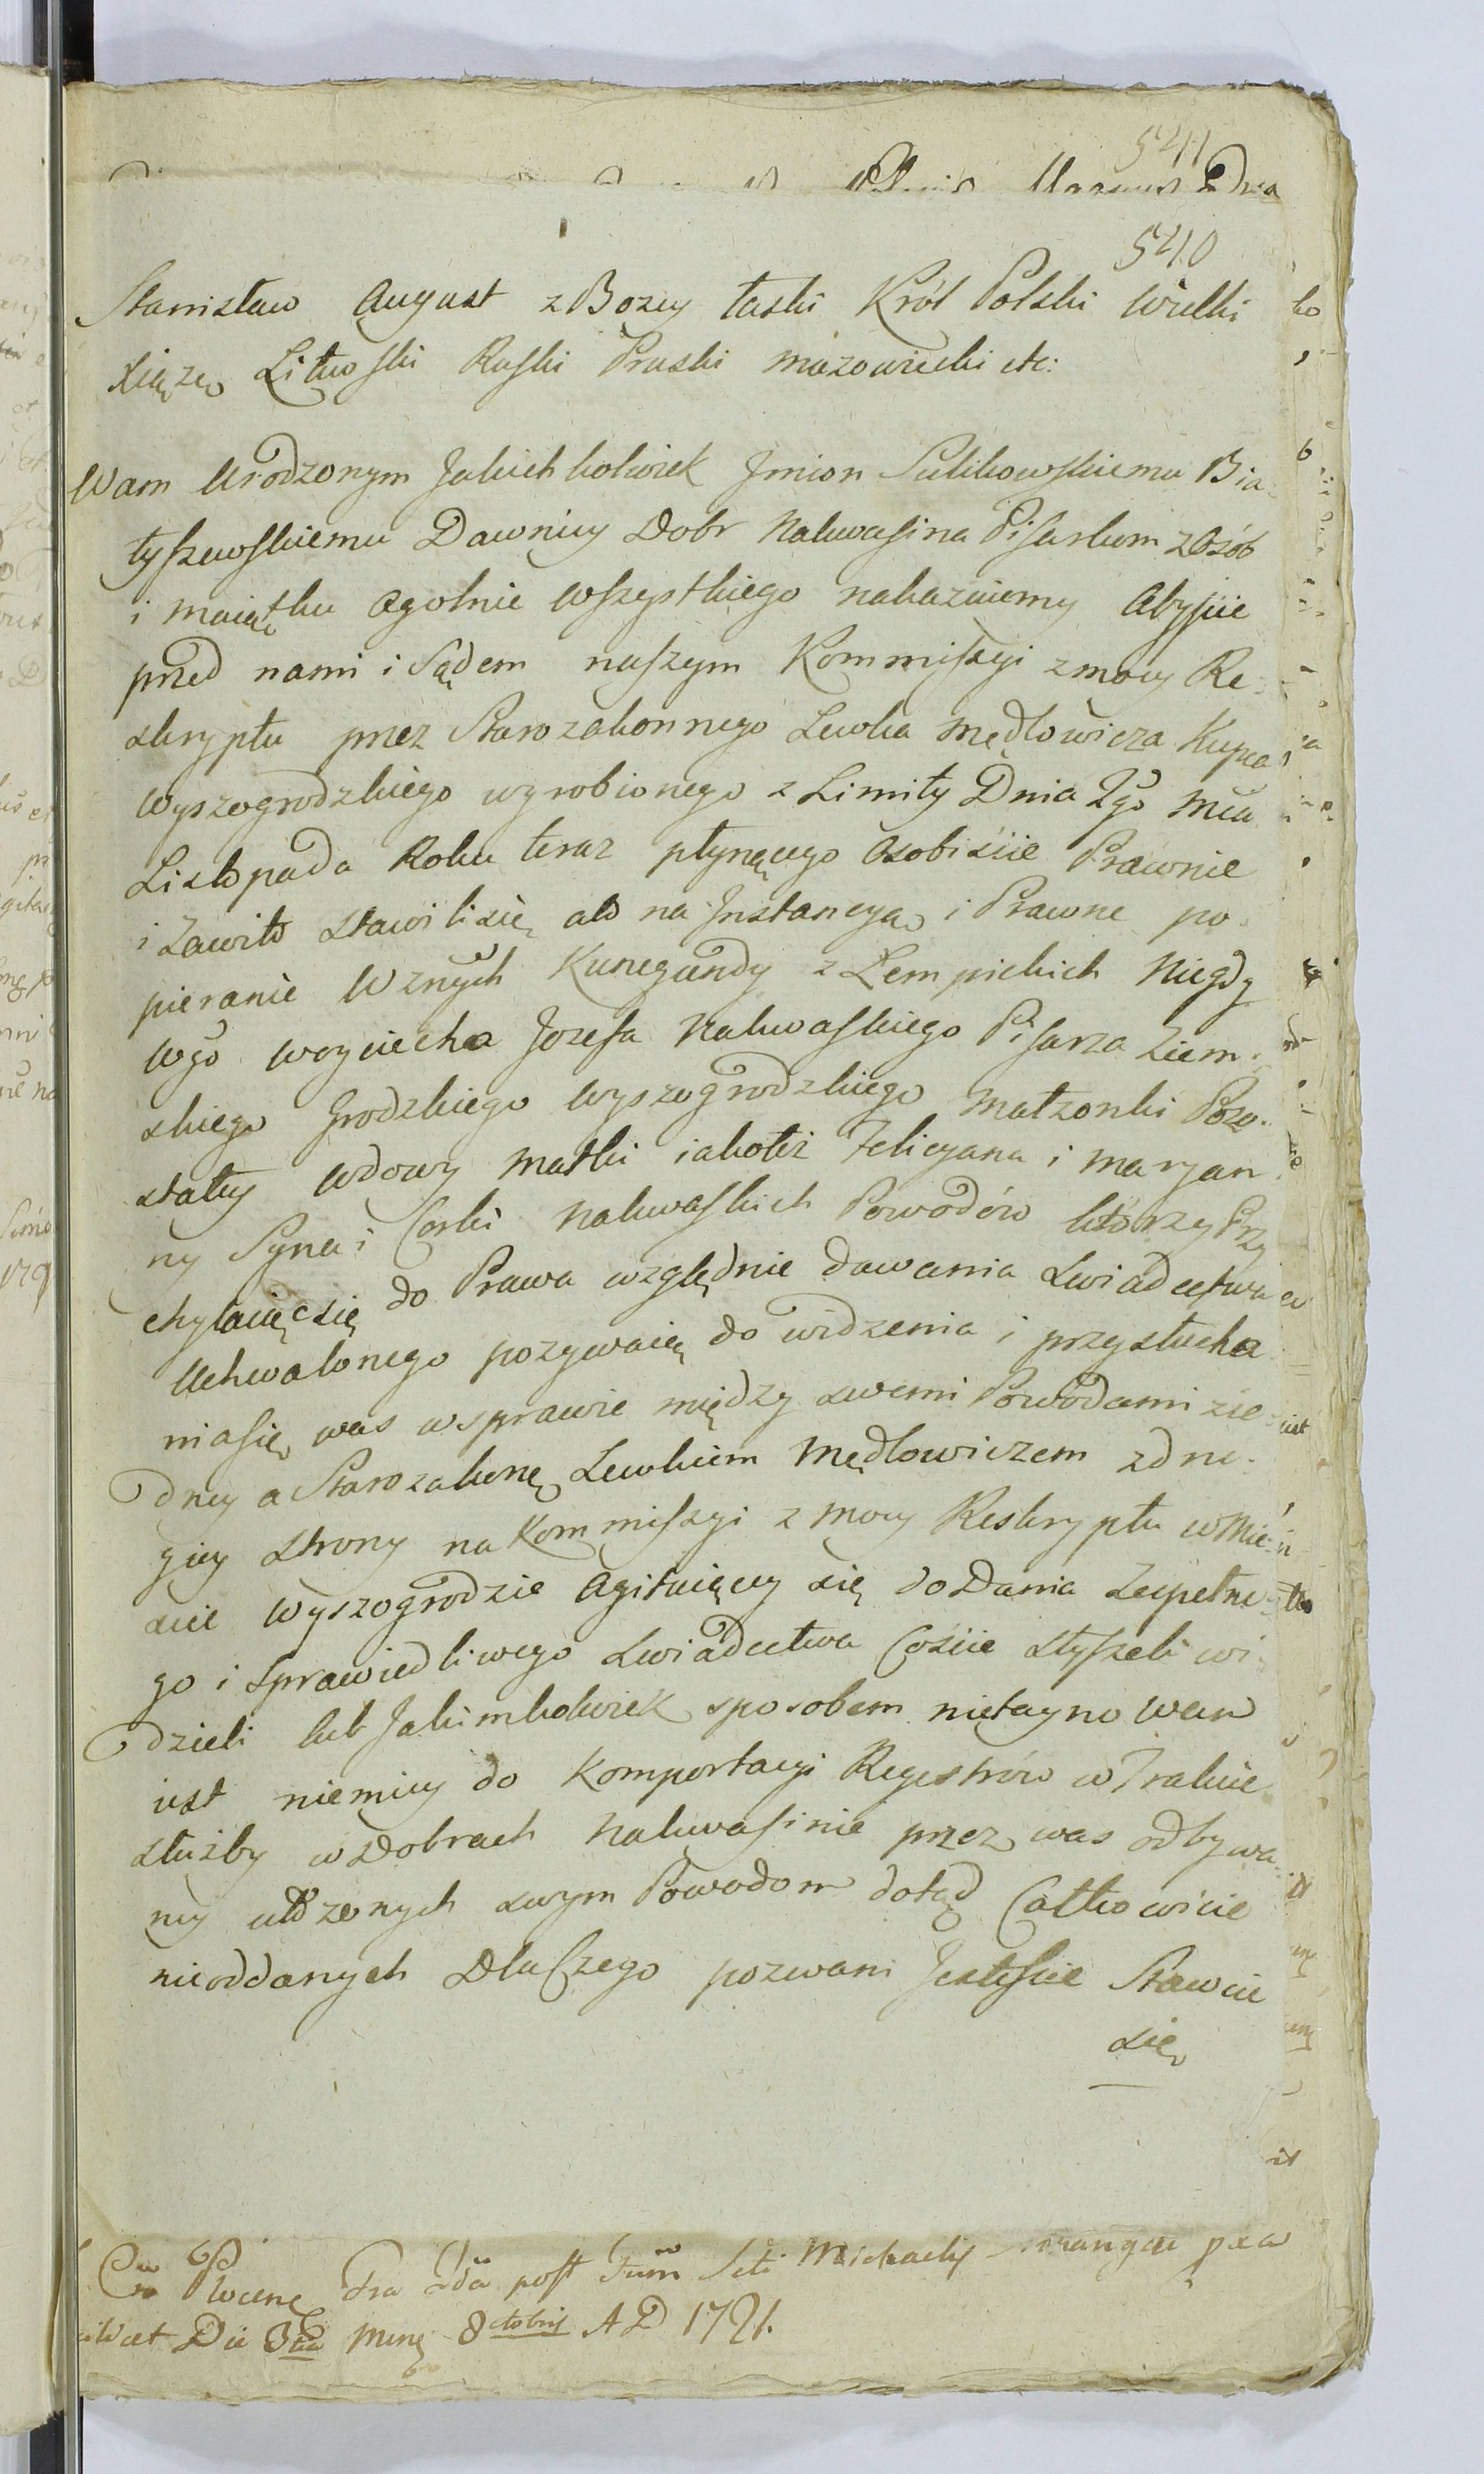 541
540
Stanisław August z Bozey łaski Król Polski Wielki
Xiąze Litewski Ruski Pruski mazowiecki etc:
Wam Urodzonym Jakichkolwiek Jmion Sulikowskiemu Bia-
łyszewskiemu Dawniey Dobr Nakwasina Pisarkom z Osób
i maiątku ogolnie wszystkiego nakazuiemy Abyście
przed nami i Sądem naszym Kommissyi z mocy Re-
skryptu przez Starozakonnego Lewka Mędlowicza Kupca
Wyszogrodzkiego wyrobionego z Limity Dnia 2go mca
Listopada Roku teraz płynącego Osobiście Prawnie
i Zawito stawili się a to na Jnstancyą i Prawne po-
pieranie Wznych Kunegundy z Lempickich Niegdy
Wgo Woyciecha Jozefa Nakwaskiego Pisarza Ziem-
skiego Grodzkiego Wyszogrodzkiego Małzonki Pozo-
stałey Wdowy Matki iakoteż Felicyana i Maryan-
ny Syna i Corki Nakwaskich Powodów którzy Przy
chylaiąc się do Prawa względnie dawania Swiadectwa
Uchwalonego pozywaią do widzenia i przysłucha
nia się was w sprawie między swemi Powodami zie-
dney a Starozakonę Lewkiem Mędlowiczem z dru-
giey strony na Kommissyi z mocy Reskryptu w Mie-
scie Wyszogrodzie Agituiącey się do Dania Zupełne-
go i Sprawiedliwego Swiadectwa Coście słyszeli wi-
dzieli lub Jakimkolwiek sposobem nietayno wam
iest niemniey do Komportacyi Regestrów w Trakcie
służby w Dobrach Nakwasinie przez was odbywa-
ney ułozonych swym Powodom dotąd Całkowicie
nieoddanych Dla Czego pozwani Jesteście Stawcie
się
Plocen Fra 2da post Fum Sti Michaelis pxa
Die 3tia Mens 8ctobris AD 1791.